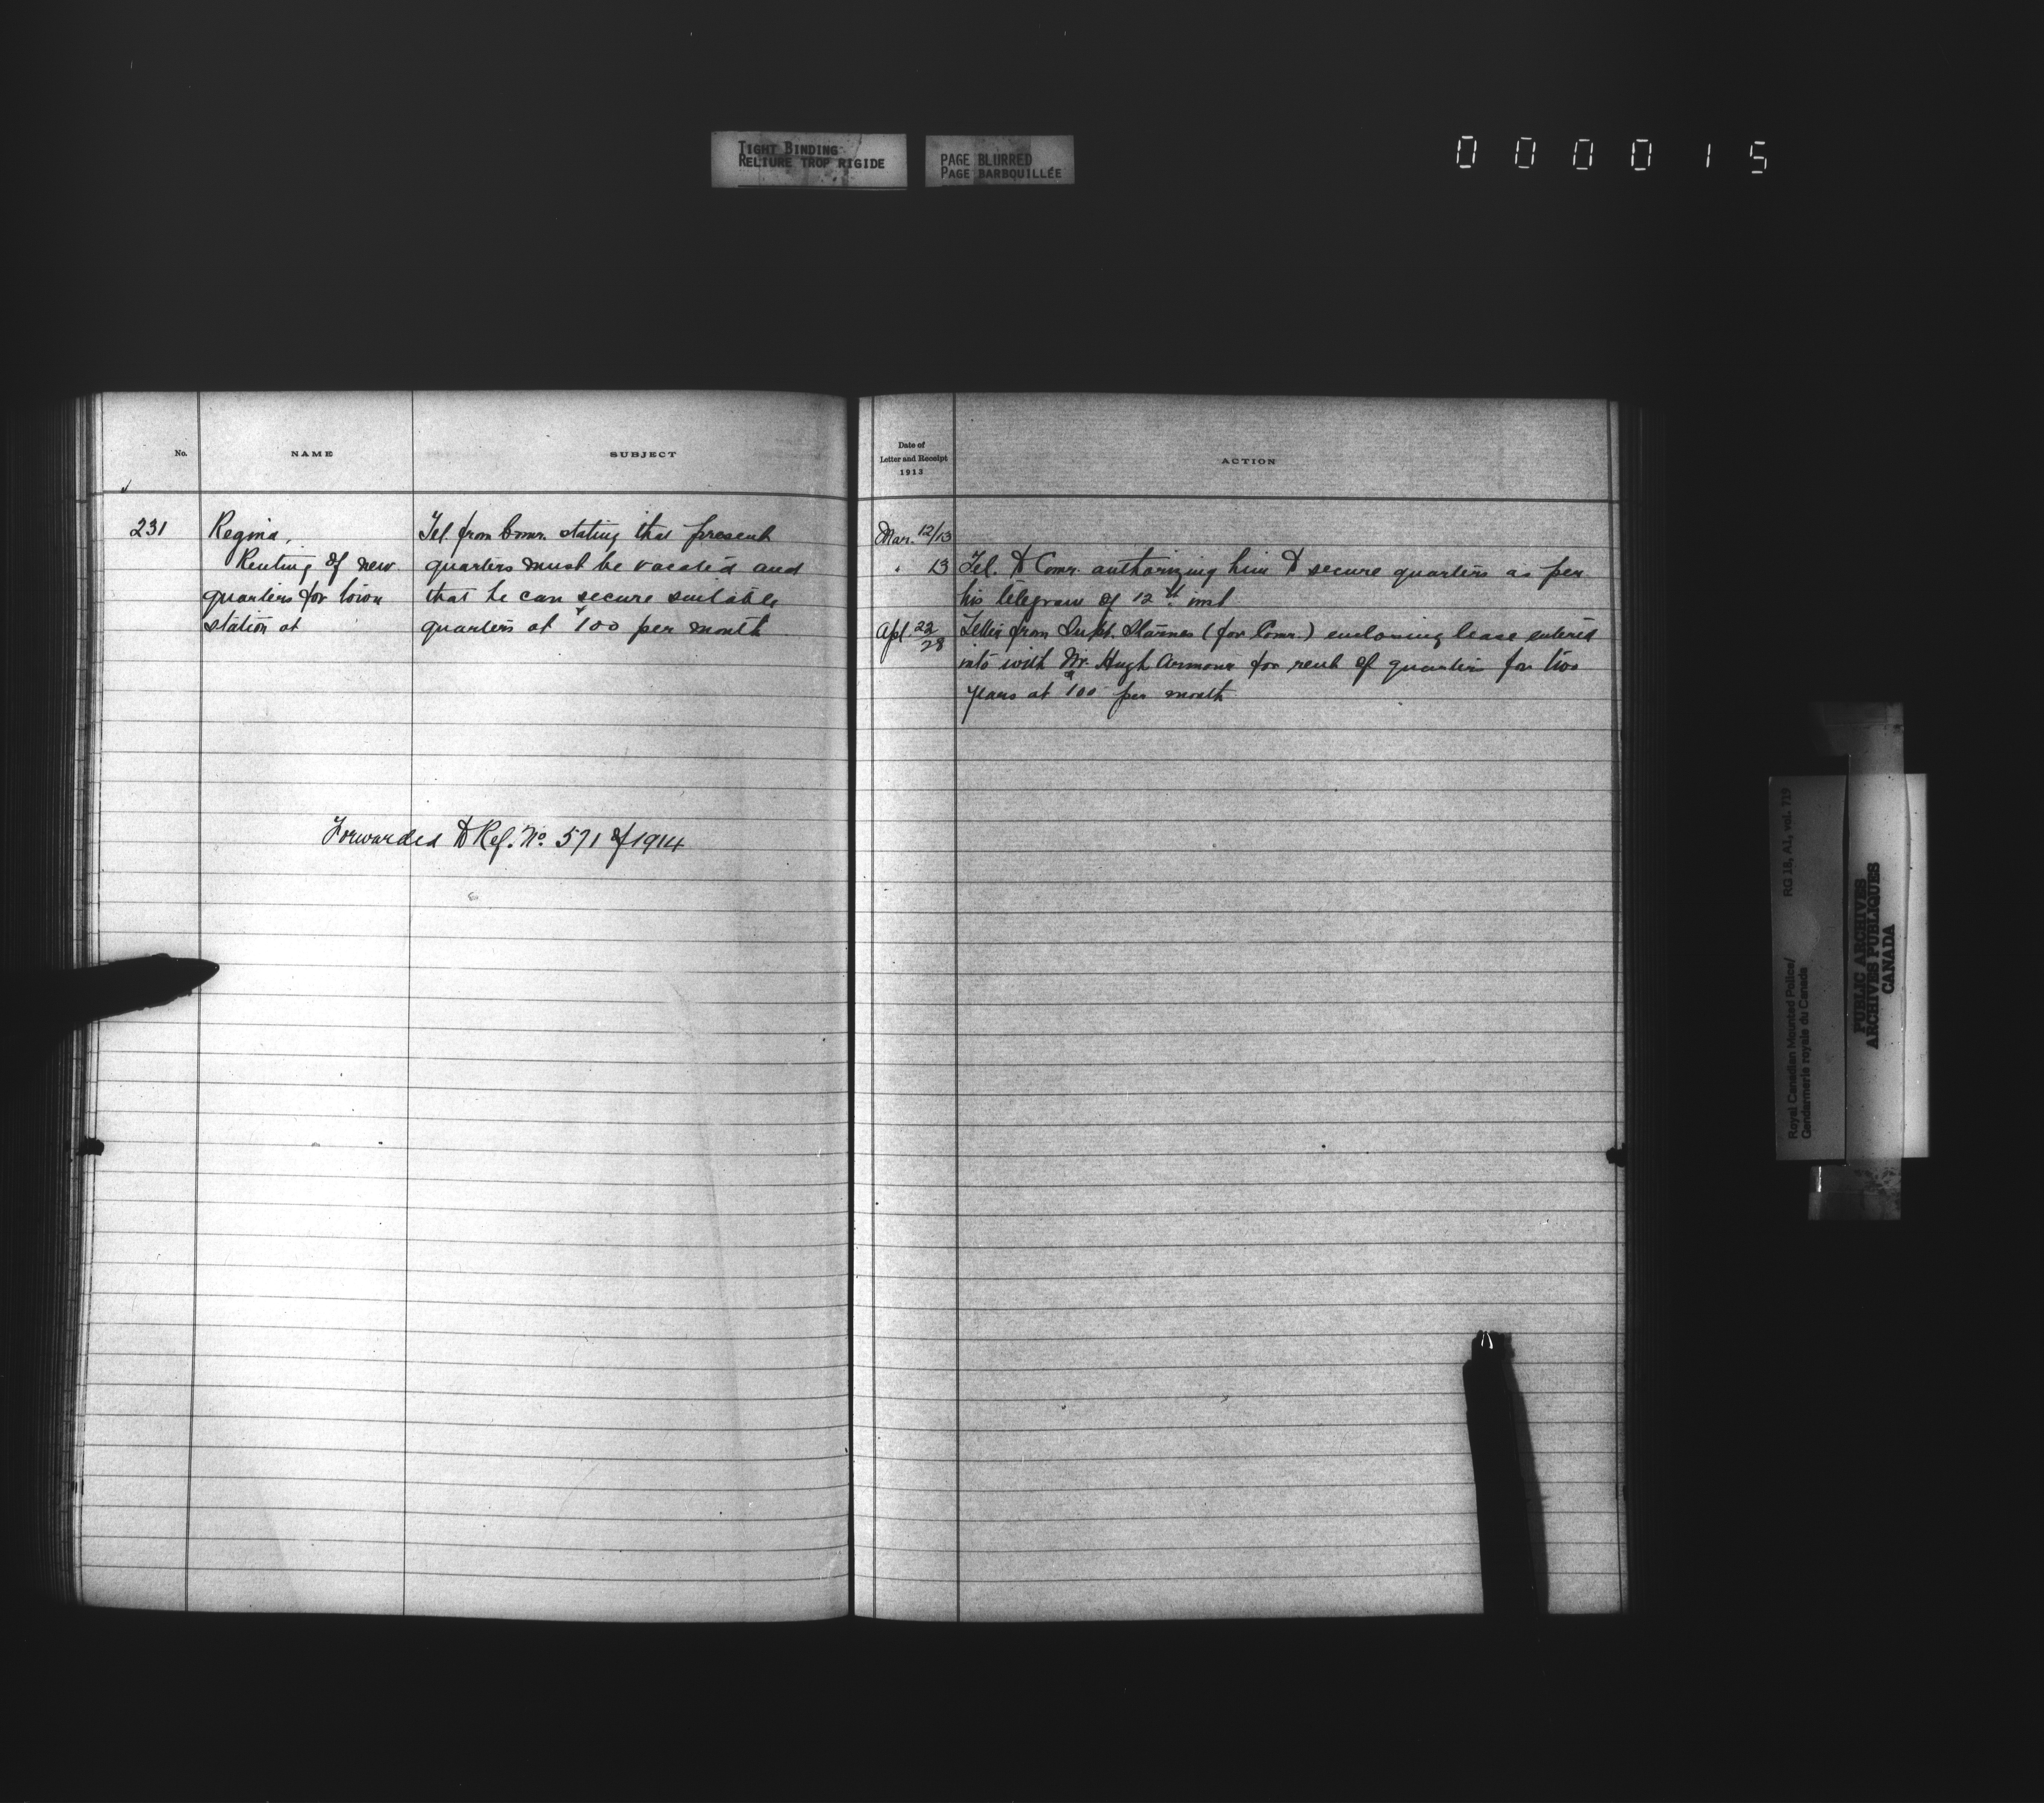 TIGHT BINDING
RELIURE TROP RIGIDE
PAGE BLURRED
PAGE BARBOUILLÉE
000015
No.
NAME
SUBJECT
231
Regina,
Renting of new
quarters for town
station at
Tel. from Comr. stating that present
quarters must be vacated and
that he can secure suitable
quarters at $100 per month
Forwarded to Ref. No. 571 of 1914
Date of
Letter and Receipt
1913
ACTION
Mar. 12/13
" 13 Tel. to Comr. authorizing him to secure quarters as per
his telegram of 12th inst.
Apl. 22/28 Letter from Supt. Starnes (for Comr.) enclosing lease entered
into with Mr. Hugh Armour for rent of quarters for two
years at $100 per month
Royal Canadian Mounted Police/
Gendarmerie royale du Canada
RG 18, A1, vol. 719
PUBLIC ARCHIVES
ARCHIVES PUBLIQUES
CANADA